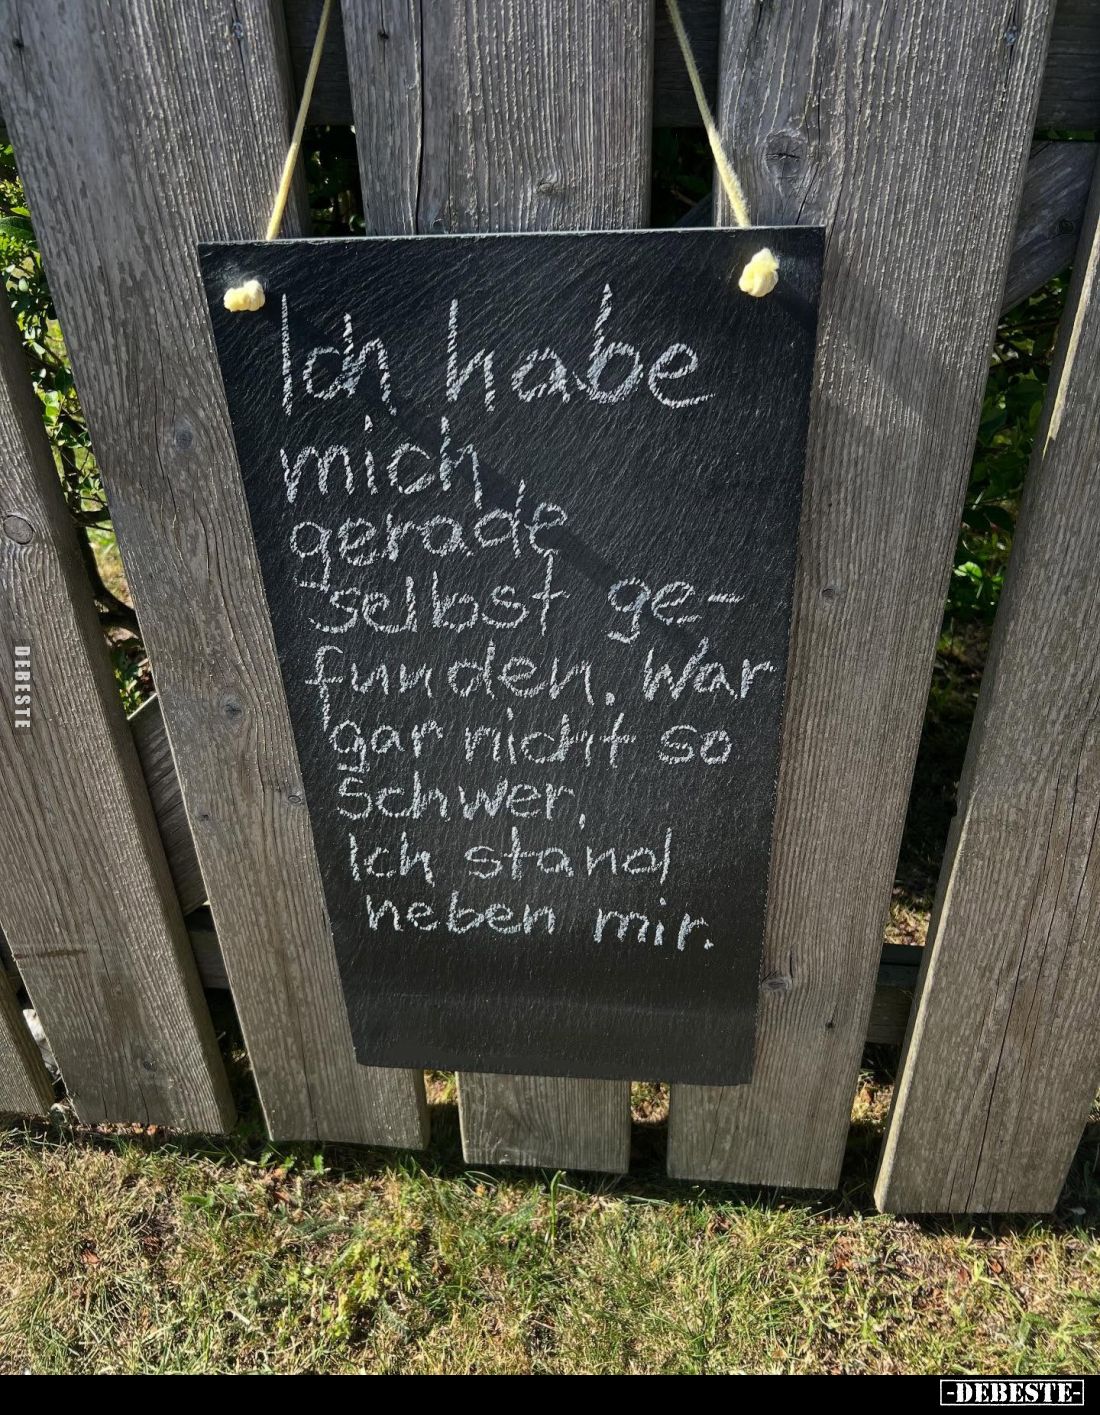 Ich habe
mich
gerade
selbst ge-
funden. War
gar nicht so
schwer,
Ich stand
neben mir.
DEBESTE
-DEBESTE-